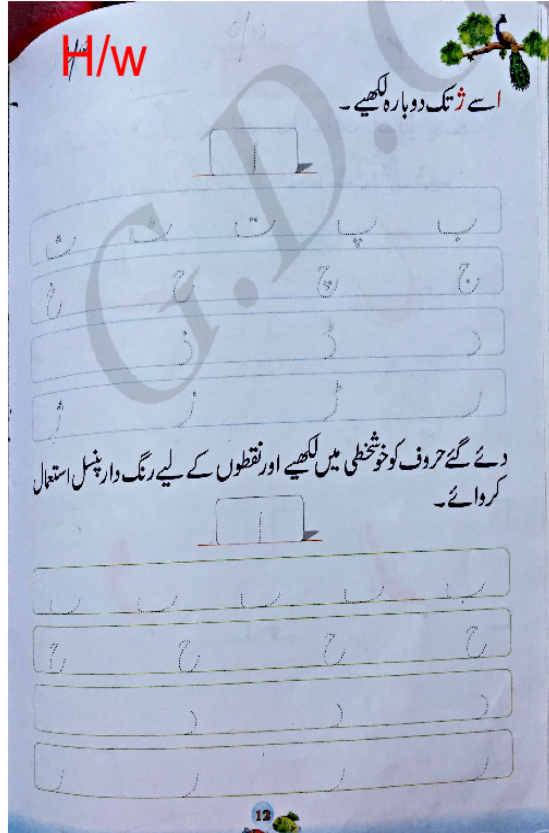 H/w
G.D.C
اسے ژ تک دوبارہ لکھیے ۔
ا
ب پ ت ٹ ث
ج چ ح خ
د ڈ ذ
ر ڑ ز ژ
دئے گئے حروف کو خوشخطی میں لکھیے اور نقطوں کے لیے رنگ دار پنسل استعمال
کروائے ۔
ا
ٮ ٮ ٮ ٮ
ح ح ح ح
د د د
ر ر ر ر
12